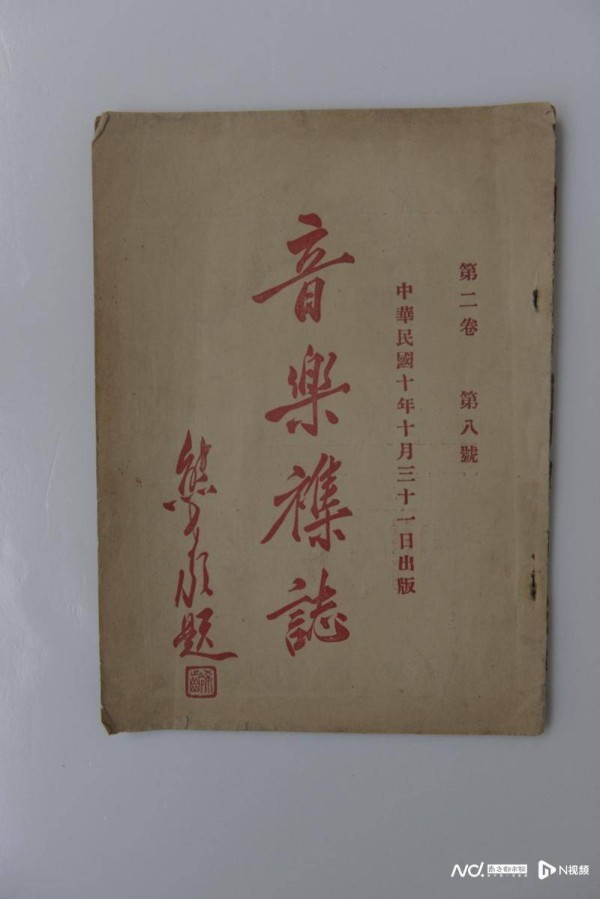 第二卷 第八號
中華民國十年十月三十一日出版
音樂襍誌
題
N视频